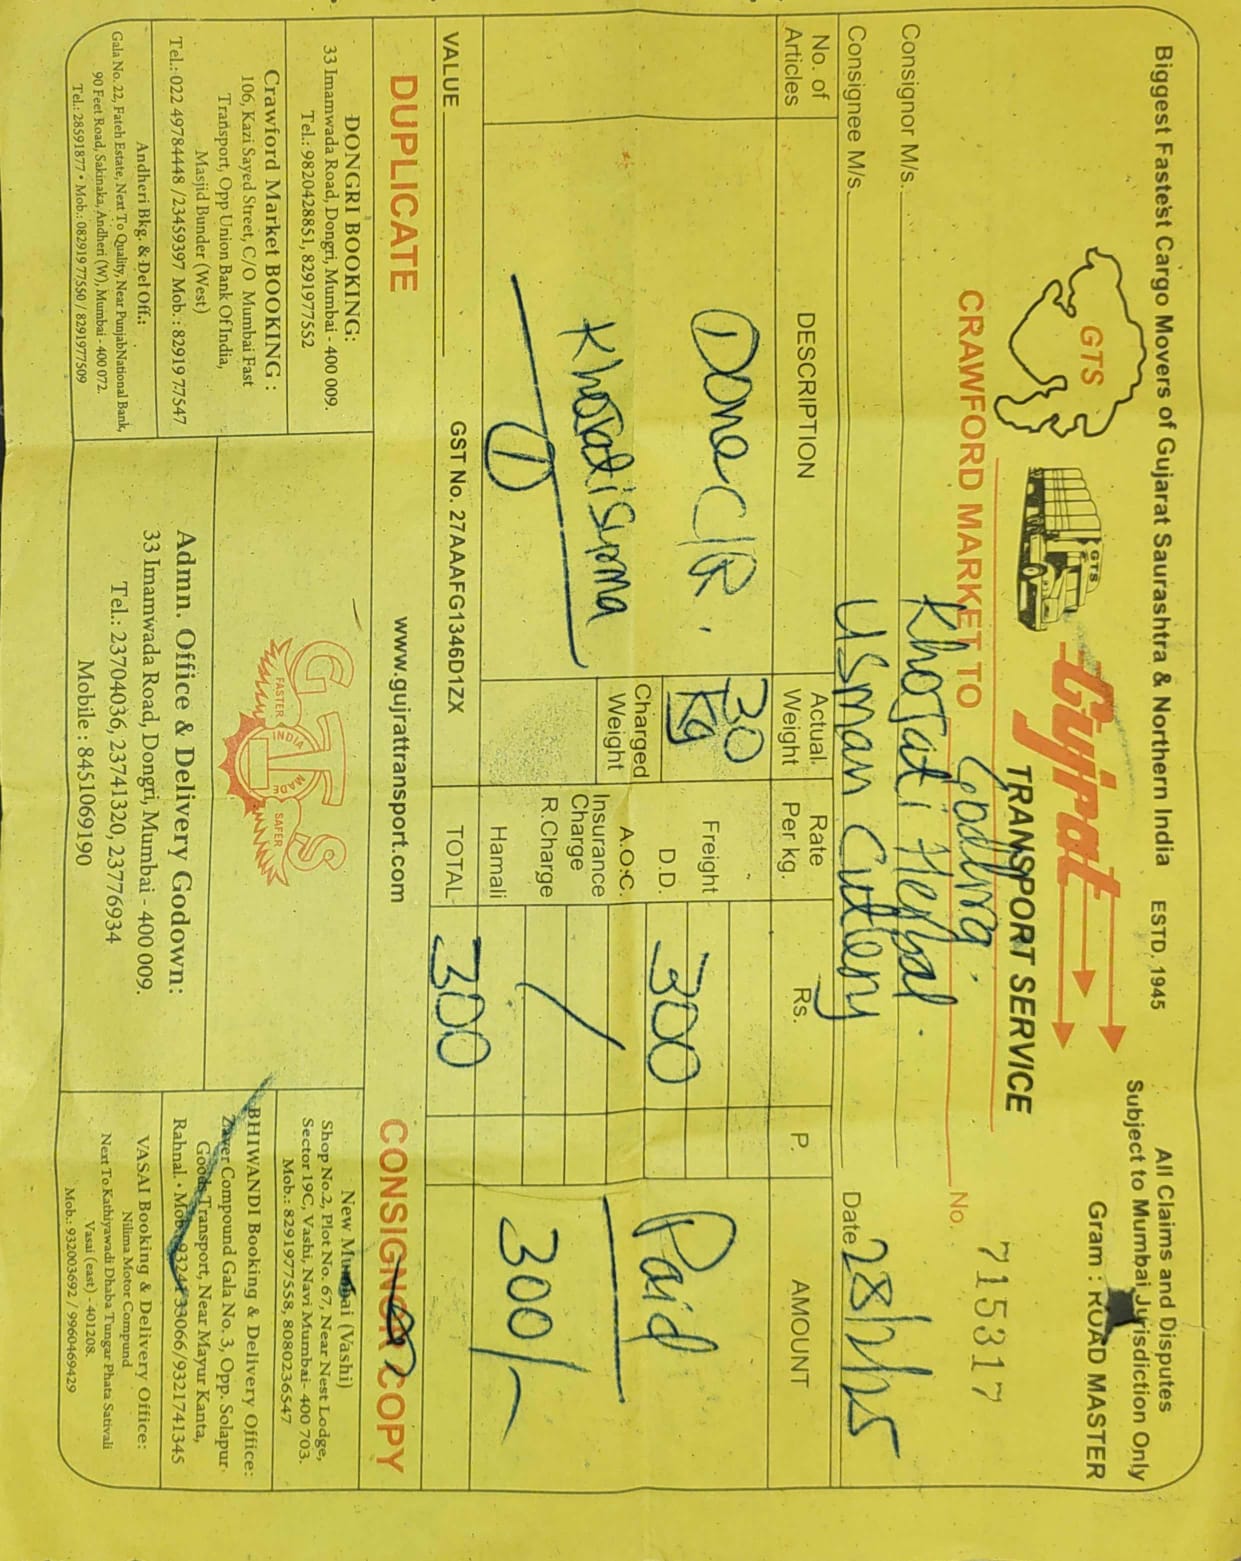 Biggest Fastest Cargo Movers of Gujarat Saurashtra & Northern India ESTD. 1945
All Claims and Disputes
Subject to Mumbai Jurisdiction Only
Gram : ROAD MASTER
GTS
GTS
Gujrat
TRANSPORT SERVICE
CRAWFORD MARKET TO
No. 715317
Consignor M/s. Khojati Herbal.
Consignee M/s. Usman Cutlery
Date 28/1/25
No. of Articles
DESCRIPTION
Actual Weight
Rate Per kg.
Rs.
P.
AMOUNT
One C/R.
30 Kg
Freight
D.D. 300
Paid
Charged Weight
A.O.C.
Insurance Charge
R.Charge
Khojati Surma
1
Hamali
300/-
VALUE
GST No. 27AAAFG1346D1ZX
TOTAL 300
DUPLICATE
www.gujrattransport.com
CONSIGNOR COPY
DONGRI BOOKING:
33 Imamwada Road, Dongri, Mumbai - 400 009.
Tel.: 9820428851, 8291977552
Crawford Market BOOKING :
106, Kazi Sayed Street, C/O Mumbai Fast
Transport, Opp Union Bank Of India,
Masjid Bunder (West)
Tel.: 022 49784448 /23459397 Mob. : 82919 77547
Andheri Bkg. & Del Off.:
Gala No. 22, Fateh Estate, Next To Quality, Near PunjabNational Bank,
90 Feet Road, Sakinaka, Andheri (W), Mumbai - 400 072.
Tel.: 28591877 • Mob.: 08291977550 / 8291977509
GTS
FASTER
SAFER
INDIA
MADE
Admn. Office & Delivery Godown:
33 Imamwada Road, Dongri, Mumbai - 400 009.
Tel.: 23704036, 23741320, 23776934
Mobile : 8451069190
New Mumbai (Vashi)
Shop No.2, Plot No. 67, Near Nest Lodge,
Sector 19C, Vashi, Navi Mumbai- 400 703.
Mob.: 8291977558, 8080236547
BHIWANDI Booking & Delivery Office:
Zaver Compound Gala No. 3, Opp. Solapur
Goods Transport, Near Mayur Kanta,
Rahnal. • Mob. 33066 /9321741345
VASAI Booking & Delivery Office:
Nilima Motor Compund
Next To Kathiyawadi Dhaba Tungar Phata Sativali
Vasai (east) - 401208.
Mob.: 932003692 / 9960469429